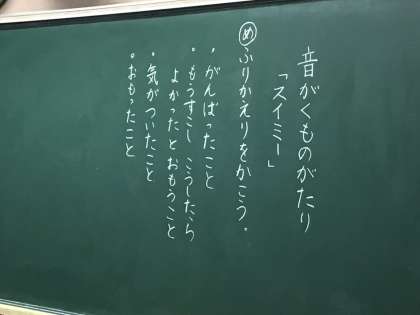 音がくものがたり
「スイミー」
めふりかえりをかこう。
・がんばったこと
・もうすこしこうしたら
よかったとおもうこと
・気がついたこと
・おもったこと